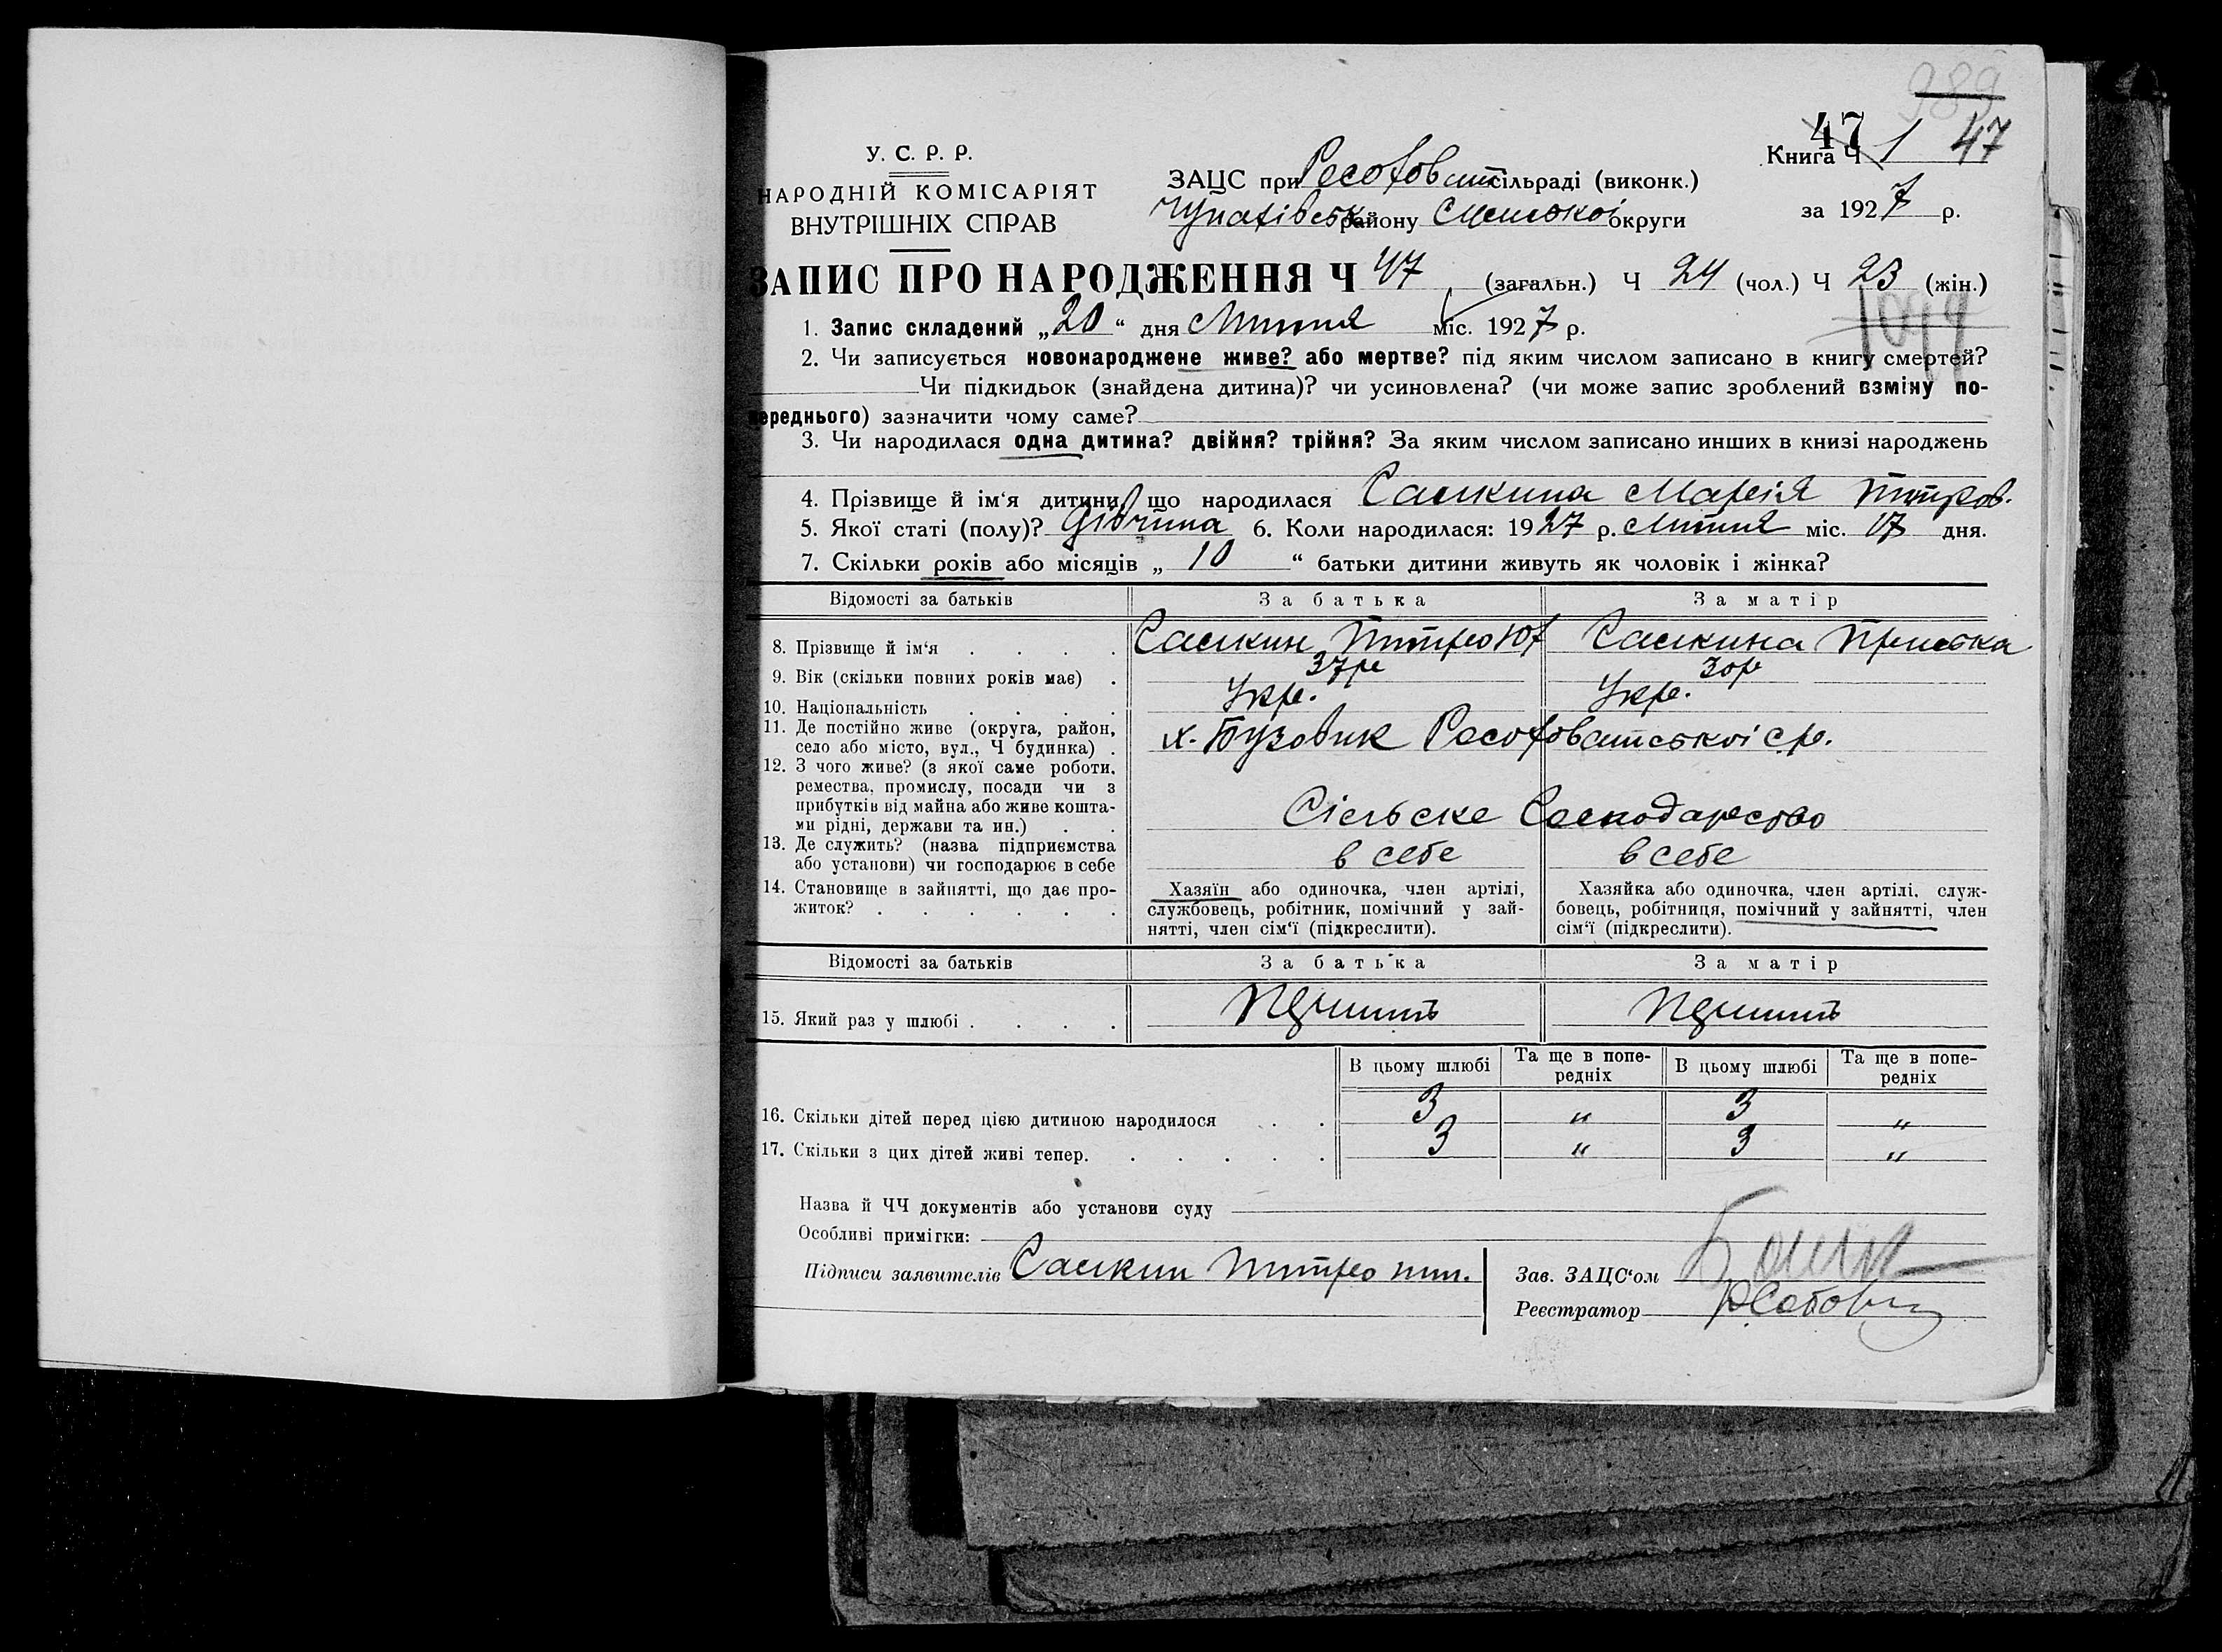 989
47
У. С. Р. Р.
Книга Ч 1 47
НАРОДНІЙ КОМІСАРІЯТ
ВНУТРІШНІХ СПРАВ
ЗАЦС при сільраді (виконк.)
району Сумської округи
за 1927 р.
ЗАПИС ПРО НАРОДЖЕННЯ Ч 47 (загальн.) Ч 24 (чол.) Ч 23 (жін.)
1. Запис складений „20“ дня Липня міс. 1927 р.
2. Чи записується новонароджене живе? або мертве? під яким числом записано в книгу смертей?
Чи підкидьок (знайдена дитина)? чи усиновлена? (чи може запис зроблений взміну по-
переднього) зазначити чому саме?
3. Чи народилася одна дитина? двійня? трійня? За яким числом записано инших в книзі народжень
4. Прізвище й ім‘я дитини, що народилася Салкина Марія Петров.
5. Якої статі (полу)? Дівчина 6. Коли народилася: 1927 р. Липня міс. 17 дня.
7. Скільки років або місяців „ 10 “ батьки дитини живуть як чоловік і жінка?
Відомості за батьків За батька За матір
8. Прізвище й ім‘я . . . . Салкин Петро Салкина Приська
9. Вік (скільки повних років має) . 37р 30р
10. Національність . . . . Укр. Укр.
11. Де постійно живе (округа, район,
село або місто, вул., Ч будинка) . х. Бузовик с.р.
12. З чого живе? (з якої саме роботи,
ремества, промислу, посади чи з
прибутків від майна або живе кошта-
ми рідні, держави та ин.) . . Сільське Господарство
13. Де служить? (назва підприємства
або установи) чи господарює в себе в себе в себе
14. Становище в зайнятті, що дає про-
житок? . . . . . .
Хазяїн або одиночка, член артілі,
службовець, робітник, помічний у зай-
нятті, член сім‘ї (підкреслити).
Хазяйка або одиночка, член артілі, служ-
бовець, робітниця, помічний у зайнятті, член
сім‘ї (підкреслити).
Відомості за батьків За батька За матір
15. Який раз у шлюбі . . . .
В цьому шлюбі Та ще в попе-
редніх В цьому шлюбі Та ще в попе-
редніх
16. Скільки дітей перед цією дитиною народилося . . 3 „ 3 „
17. Скільки з цих дітей живі тепер. . . . . . 3 „ 3 „
Назва й ЧЧ документів або установи суду
Особливі примітки:
Підписи заявителів Салкин Петро
Зав. ЗАЦС‘ом
Реєстратор